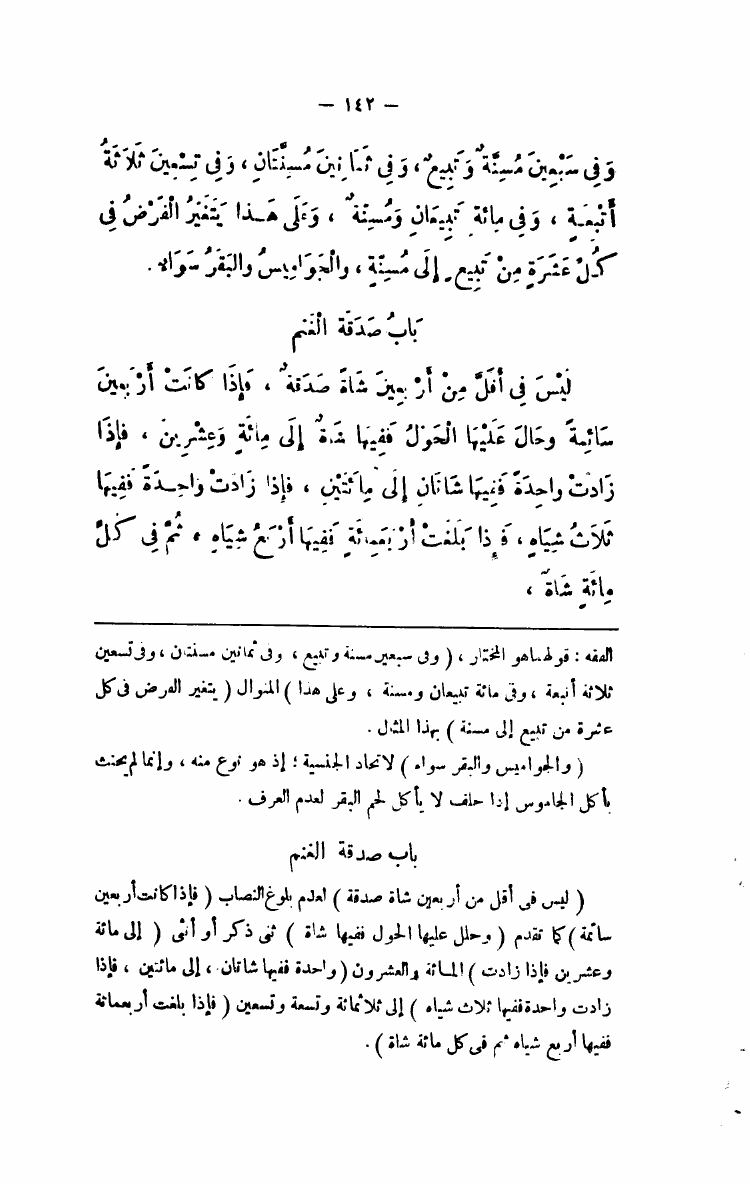 — ١٤٢ —
وَفِى سَبْعِينَ مُسِنَّةٌ وَتَبِيعٌ ، وَفِى ثَمَانِينَ مُسِنَّتَانِ ، وَفِى تِسْعِينَ ثَلَاثَةُ
أَتْبِعَةٍ ، وَفِى مِائَةٍ تَبِيعَانِ وَمُسِنَّةٌ ، وَعَلَى هَـذا يَتَغَيَّرُ الْفَرْضُ فِى
كُلِّ عَشَرَةٍ مِنْ تَبِيعٍ إِلَى مُسِنَّةٍ ، والْجَوَامِيسُ والبَقَرُ سَوَاءٌ .
بَابُ صَدَقَةِ الْغَنَمِ
لَيْسَ فِى أَقَلَّ مِنْ أَرْبَعِينَ شَاةً صَدَقَةٌ ، فَإِذَا كَانَتْ أَرْبَعِينَ
سَائِمَةً وحَالَ عَلَيْهَا الْحَوْلُ فَفِيهَا شَاةٌ إِلَى مِائَةٍ وَعِشْرِينَ ، فإِذَا
زَادَتْ واحِدَةً فَفِيهَا شَاتَانِ إِلَى مِائَتَيْنِ ، فإِذا زَادَتْ واحِـدَةً فَفِيهَا
ثَلَاثُ شِيَاهٍ ، فَإِذا بَلَغَتْ أَرْبَعَمِائَةٍ فَفِيهَا أَرْبَعُ شِيَاهٍ ، ثُمَّ فِى كُلِّ
مِائَةٍ شَاةٌ ،
الفقه : قولهما هو المختار ، ( وفى سبعين مسنة وتبيع ، وفى ثمانين مسنتان ، وفى تسعين
ثلاثة أتبعة ، وفى مائة تبيعان ومسنة ، وعلى هذا ) المنوال ( يتغير الفرض فى كل
عشرة من تبيع إلى مسنة ) بهذا المثال .
( والجواميس والبقر سواء ) لاتحاد الجنسية ؛ إذ هو نوع منه ، وإنما لم يحنث
بأكل الجاموس إذا حلف لا يأكل لحم البقر لعدم العرف .
باب صدقة الغنم
( ليس فى أقل من أربعين شاة صدقة ) لعدم بلوغ النصاب ( فإذا كانت أربعين
سائمة ) كما تقدم ( وحال عليها الحول ففيها شاة ) ثنى ذكر أو أنثى ( إلى مائة
وعشرين فإذا زادت ) المـائة والعشرون ( واحدة ففيها شاتان ، إلى مائتين ، فإذا
زادت واحدة ففيها ثلاث شياه ) إلى ثلاثمائة وتسعة وتسعين ( فإذا بلغت أربعمائة
ففيها أربع شياه ثم فى كل مائة شاة ) .